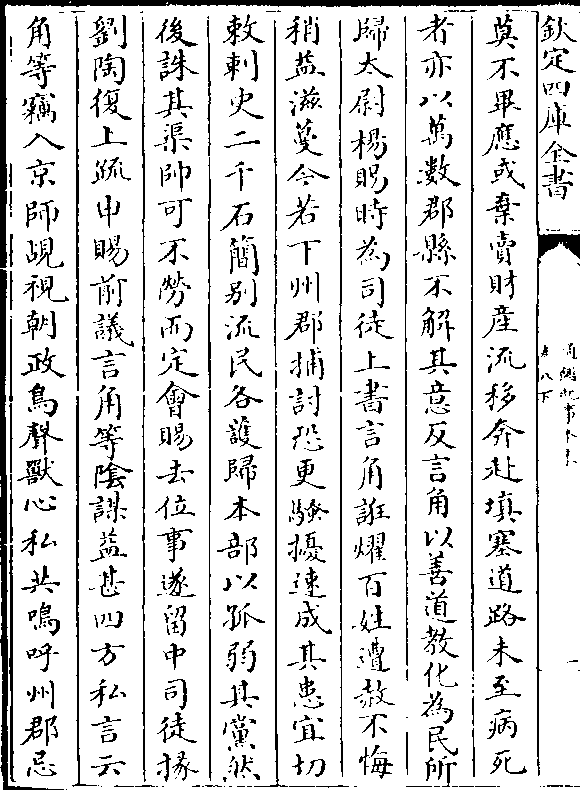 欽定四庫全書
通鑑紀事本末
卷八下
莫不畢應或棄賣財産流移奔赴填塞道路未至病死
者亦以萬數郡縣不解其意反言角以善道教化為民所
歸太尉楊賜時為司徒上書言角誑燿百姓遭赦不悔
稍益滋蔓今若下州郡捕討恐更騷擾速成其患宜切
敕刺史二千石簡别流民各護歸本部以孤弱其黨然
後誅其渠帥可不勞而定會賜去位事遂留中司徒掾
劉陶復上疏申賜前議言角等陰謀益甚四方私言云
角等竊入京師覘視朝政鳥聲獸心私共鳴呼州郡忌